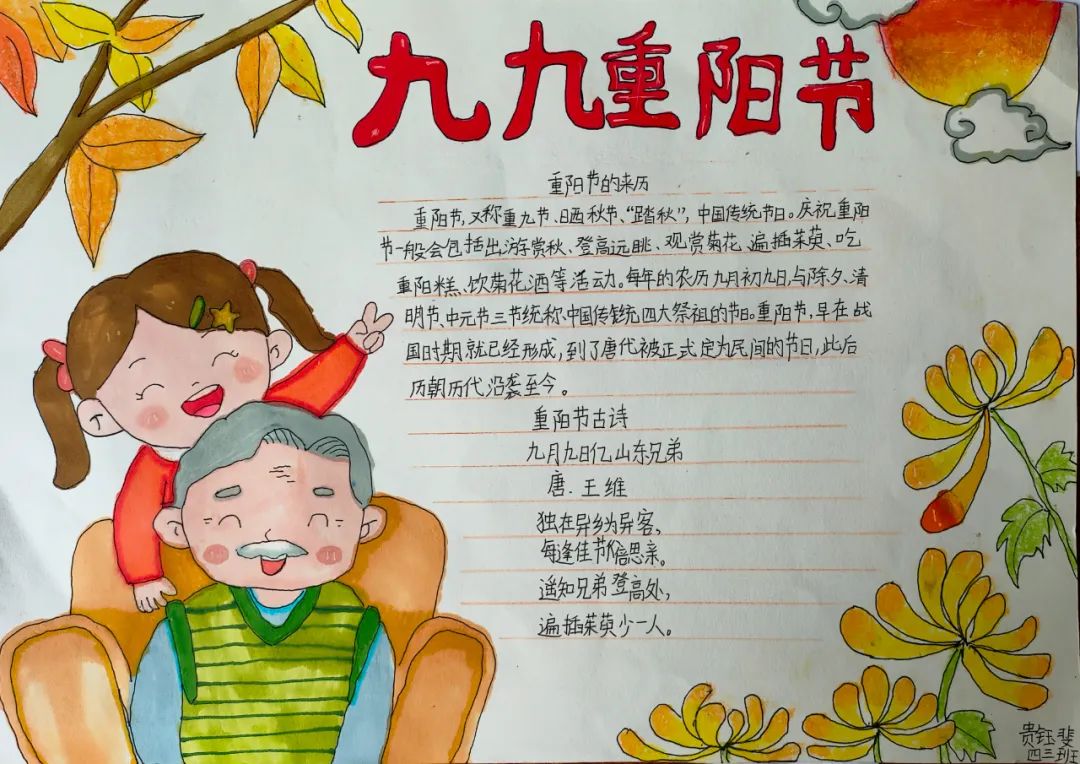 九九重阳节
重阳节的来历
重阳节,又称重九节、晒秋节、“踏秋”,中国传统节日。庆祝重阳
节一般会包括出游赏秋、登高远眺、观赏菊花、遍插茱萸、吃
重阳糕、饮菊花酒等活动。每年的农历九月初九日与除夕、清
明节、中元节三节统称中国传统四大祭祖的节日。重阳节,早在战
国时期就已经形成,到了唐代被正式定为民间的节日,此后
历朝历代沿袭至今。
重阳节古诗
九月九日亿山东兄弟
唐.王维
独在异乡为异客,
每逢佳节倍思亲。
遥知兄弟登高处,
遍插茱萸少一人。
贵钰斐
四三班